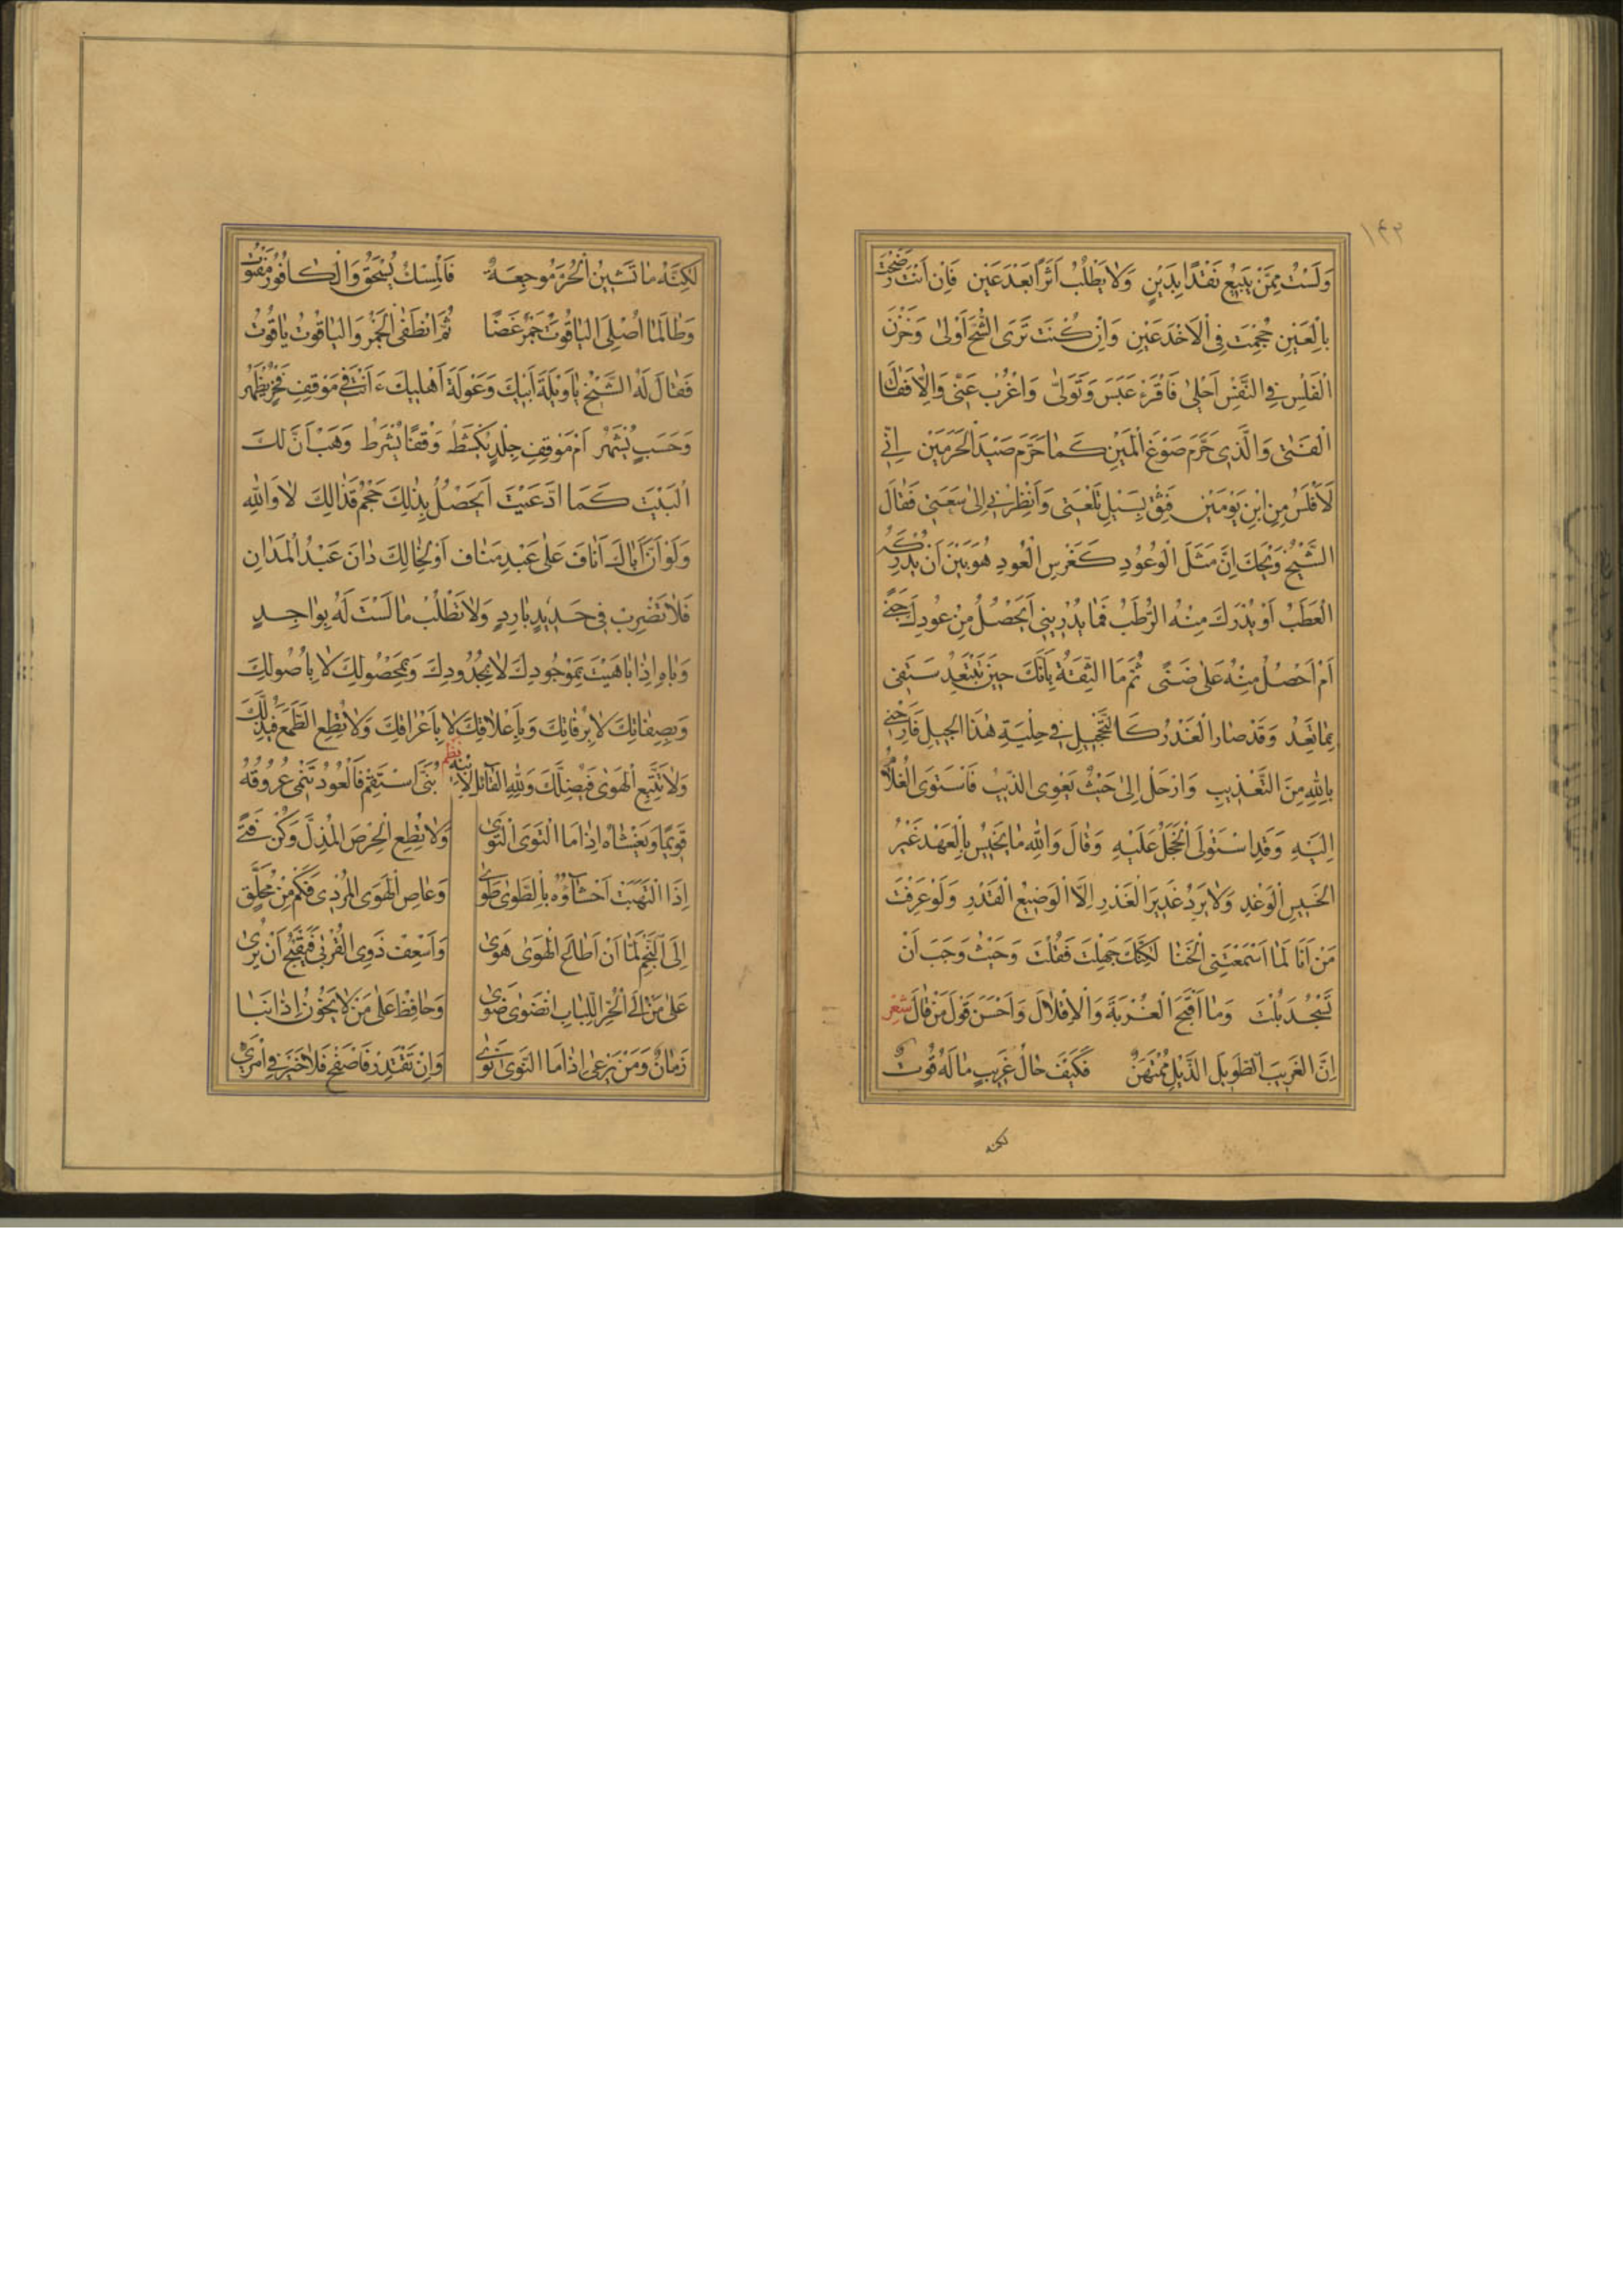 ١٤٢
وَلَسْتُ مِمَّنْ يَبِيعُ نَقْدًا بِدَيْنٍ وَلَا يَطْلُبُ اَثَرًا بَعْدَ عَيْنٍ فَاِنْ اَنْتَ رَضَخْتَ
بِالْعَيْنِ حُجِمْتَ فِى الْاَخْدَعَيْنِ وَاِنْ كُنْتَ تَرَى الشُّحَّ اَوْلىٰ وَخَزْنَ
الْفَلْسِ فِى النَّفْسِ اَحْلىٰ فَاقْرَءْ عَبَسَ وَتَوَلّىٰ وَاغْرُبْ عَنِّى وَاِلَّا فَقَالَ
الْفَتٰى وَالَّذِى حَرَّمَ صَوْغَ الْمَيْنِ كَمَا حَرَّمَ صَيْدَ الْحَرَمَيْنِ اِنِّى
لَاَفْلَسُ مِنِ ابْنِ يَوْمَيْنِ فَثِقْ بِسَيْلِ تَلْعَتِى وَاَنْظِرْنِى اِلىٰ سَعَتِى فَقَالَ
الشَّيْخُ وَيْحَكَ اِنَّ مَثَلَ الْوُعُودِ كَغَرْسِ الْعُودِ هُوَ بَيْنَ اَنْ يُدْرِكَهُ
الْعَطَبُ اَوْ يُدْرَكَ مِنْهُ الرُّطَبُ فَمَا يُدْرِينِى اَيَحْصُلُ مِنْ عُودِكَ جَنًى
اَمْ اَحْصُلُ مِنْهُ عَلىٰ ضَنًى ثُمَّ مَا الثِّقَةُ بِاَنَّكَ حِينَ تَبْتَعِدُ سَتَفِى
بِمَا تَعِدُ وَقَدْ صَارَ الْغَدْرُ كَالتَّحْجِيلِ فِى حِلْيَةِ هٰذَا الْجِيلِ فَاَرِحْنِى
بِاللّٰهِ مِنَ التَّعْذِيبِ وَارْحَلْ اِلىٰ حَيْثُ يَعْوِى الذِّيبُ فَاسْتَوَى الْغُلَامُ
اِلَيْهِ وَقَدِ اسْتَوْلَى الْخَجَلُ عَلَيْهِ وَقَالَ وَاللّٰهِ مَا يَخِيْسُ بِالْعَهْدِ غَيْرُ
الْخَسِيسِ الْوَغْدِ وَلَا يَرِدُ غَدِيرَ الْغَدْرِ اِلَّا الْوَضِيعُ الْقَدْرِ وَلَوْ عَرَفْتَ
مَنْ اَنَا لَمَا اَسْمَعْتَنِى الْخَنَا لٰكِنَّكَ جَهِلْتَ فَقُلْتَ وَحَيْثُ وَجَبَ اَنْ
تَسْجُدَ بُلْتَ وَمَا اَقْبَحَ الْغُرْبَةَ وَالْاِقْلَالَ وَاَحْسَنَ قَوْلَ مَنْ قَالَ شعر
اِنَّ الْغَرِيبَ الطَّوِيلَ الذَّيْلِ مُمْتَهَنٌ فَكَيْفَ حَالُ غَرِيبٍ مَا لَهُ قُوتُ
لكنه
لٰكِنَّهُ مَا تَشِينُ الْحُرَّ مُوجِعَةٌ فَالْمِسْكُ يُسْحَقُ وَالْكَافُورُ مَفْتُوتُ
وَطَالَمَا اُصْلِىَ الْيَاقُوتُ جَمْرَ غَضًا ثُمَّ انْطَفَى الْجَمْرُ وَالْيَاقُوتُ يَاقُوتُ
فَقَالَ لَهُ الشَّيْخُ يَا وَيْلَةَ اَبِيكَ وَعَوْلَةَ اَهْلِيكَ ءَاَنْتَ فِى مَوْقِفِ فَخْرٍ يُظْهَرُ
وَحَسَبٍ يُشْهَرُ اَمْ مَوْقِفِ جِلْدٍ يُكْشَطُ وَقَفًا يُشْرَطُ وَهَبْ اَنَّ لَكَ
الْبَيْتَ كَمَا ادَّعَيْتَ اَيَحْصُلُ بِذٰلِكَ حَجْمُ قَذَالِكَ لَا وَاللّٰهِ
وَلَوْ اَنَّ اَبَاكَ اَنَافَ عَلىٰ عَبْدِ مَنَافٍ اَوْ لِخَالِكَ دَانَ عَبْدُ الْمَدَانِ
فَلَا تَضْرِبْ فِى حَدِيدٍ بَارِدٍ وَلَا تَطْلُبْ مَا لَسْتَ لَهُ بِوَاجِدٍ
وَبَاهِ اِذَا بَاهَيْتَ بِمَوْجُودِكَ لَا بِجُدُودِكَ وَبِمَحْصُولِكَ لَا بِاُصُولِكَ
وَبِصِفَاتِكَ لَا بِرُفَاتِكَ وَبِاَعْلَاقِكَ لَا بِاَعْرَاقِكَ وَلَا تُطِعِ الطَّمَعَ فَيُذِلَّكَ
وَلَا تَتَّبِعِ الْهَوٰى فَيُضِلَّكَ وَلِلّٰهِ الْقَائِلُ لِاِبْنِهِ نظم بُنَىَّ اسْتَقِمْ فَالْعُودُ تَنْمِى عُرُوقُهُ
قَوِيمًا وَيَغْشَاهُ اِذَا مَا الْتَوَى التَّوٰى وَلَا تُطِعِ الْحِرْصَ الْمُذِلَّ وَكُنْ فَتًى
اِذَا الْتَهَبَتْ اَحْشَاؤُهُ بِالطَّوٰى طَوٰى وَعَاصِ الْهَوَى الْمُرْدِى فَكَمْ مِنْ مُحَلِّقٍ
اِلَى النَّجْمِ لَمَّا اَنْ اَطَاعَ الْهَوٰى هَوٰى وَاَسْعِفْ ذَوِى الْقُرْبٰى فَيَقْبُحُ اَنْ يُرٰى
عَلىٰ مَنْ اِلَى الْحُرِّ اللُّبَابِ انْضَوٰى ضَوٰى وَحَافِظْ عَلىٰ مَنْ لَا يَخُونُ اِذَا نَبَا
زَمَانٌ وَمَنْ يَرْعٰى اِذَا مَا النَّوٰى نَوٰى وَاِنْ تَقْتَدِرْ فَاصْفَحْ فَلَا خَيْرَ فِى امْرِئٍ